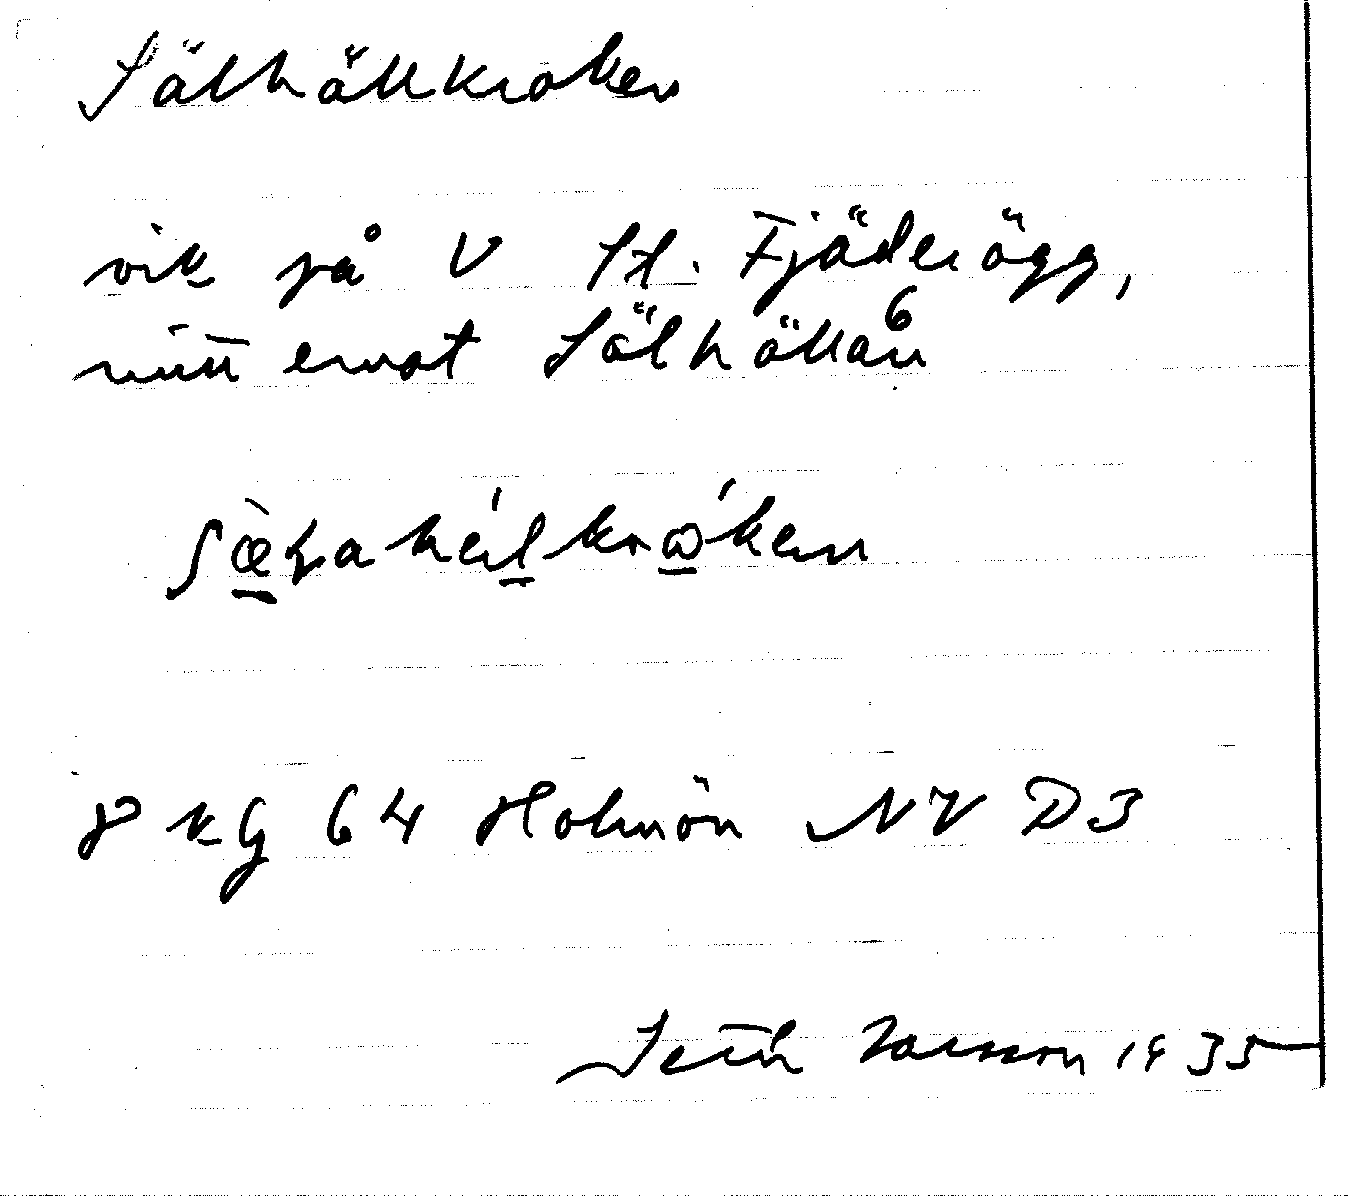 Sälhällkroken
vik på V St. Fjäderägg,
mitt emot Sälhällan 6
8 KG 64 Holmön NV D3
Seth Larsson 1935